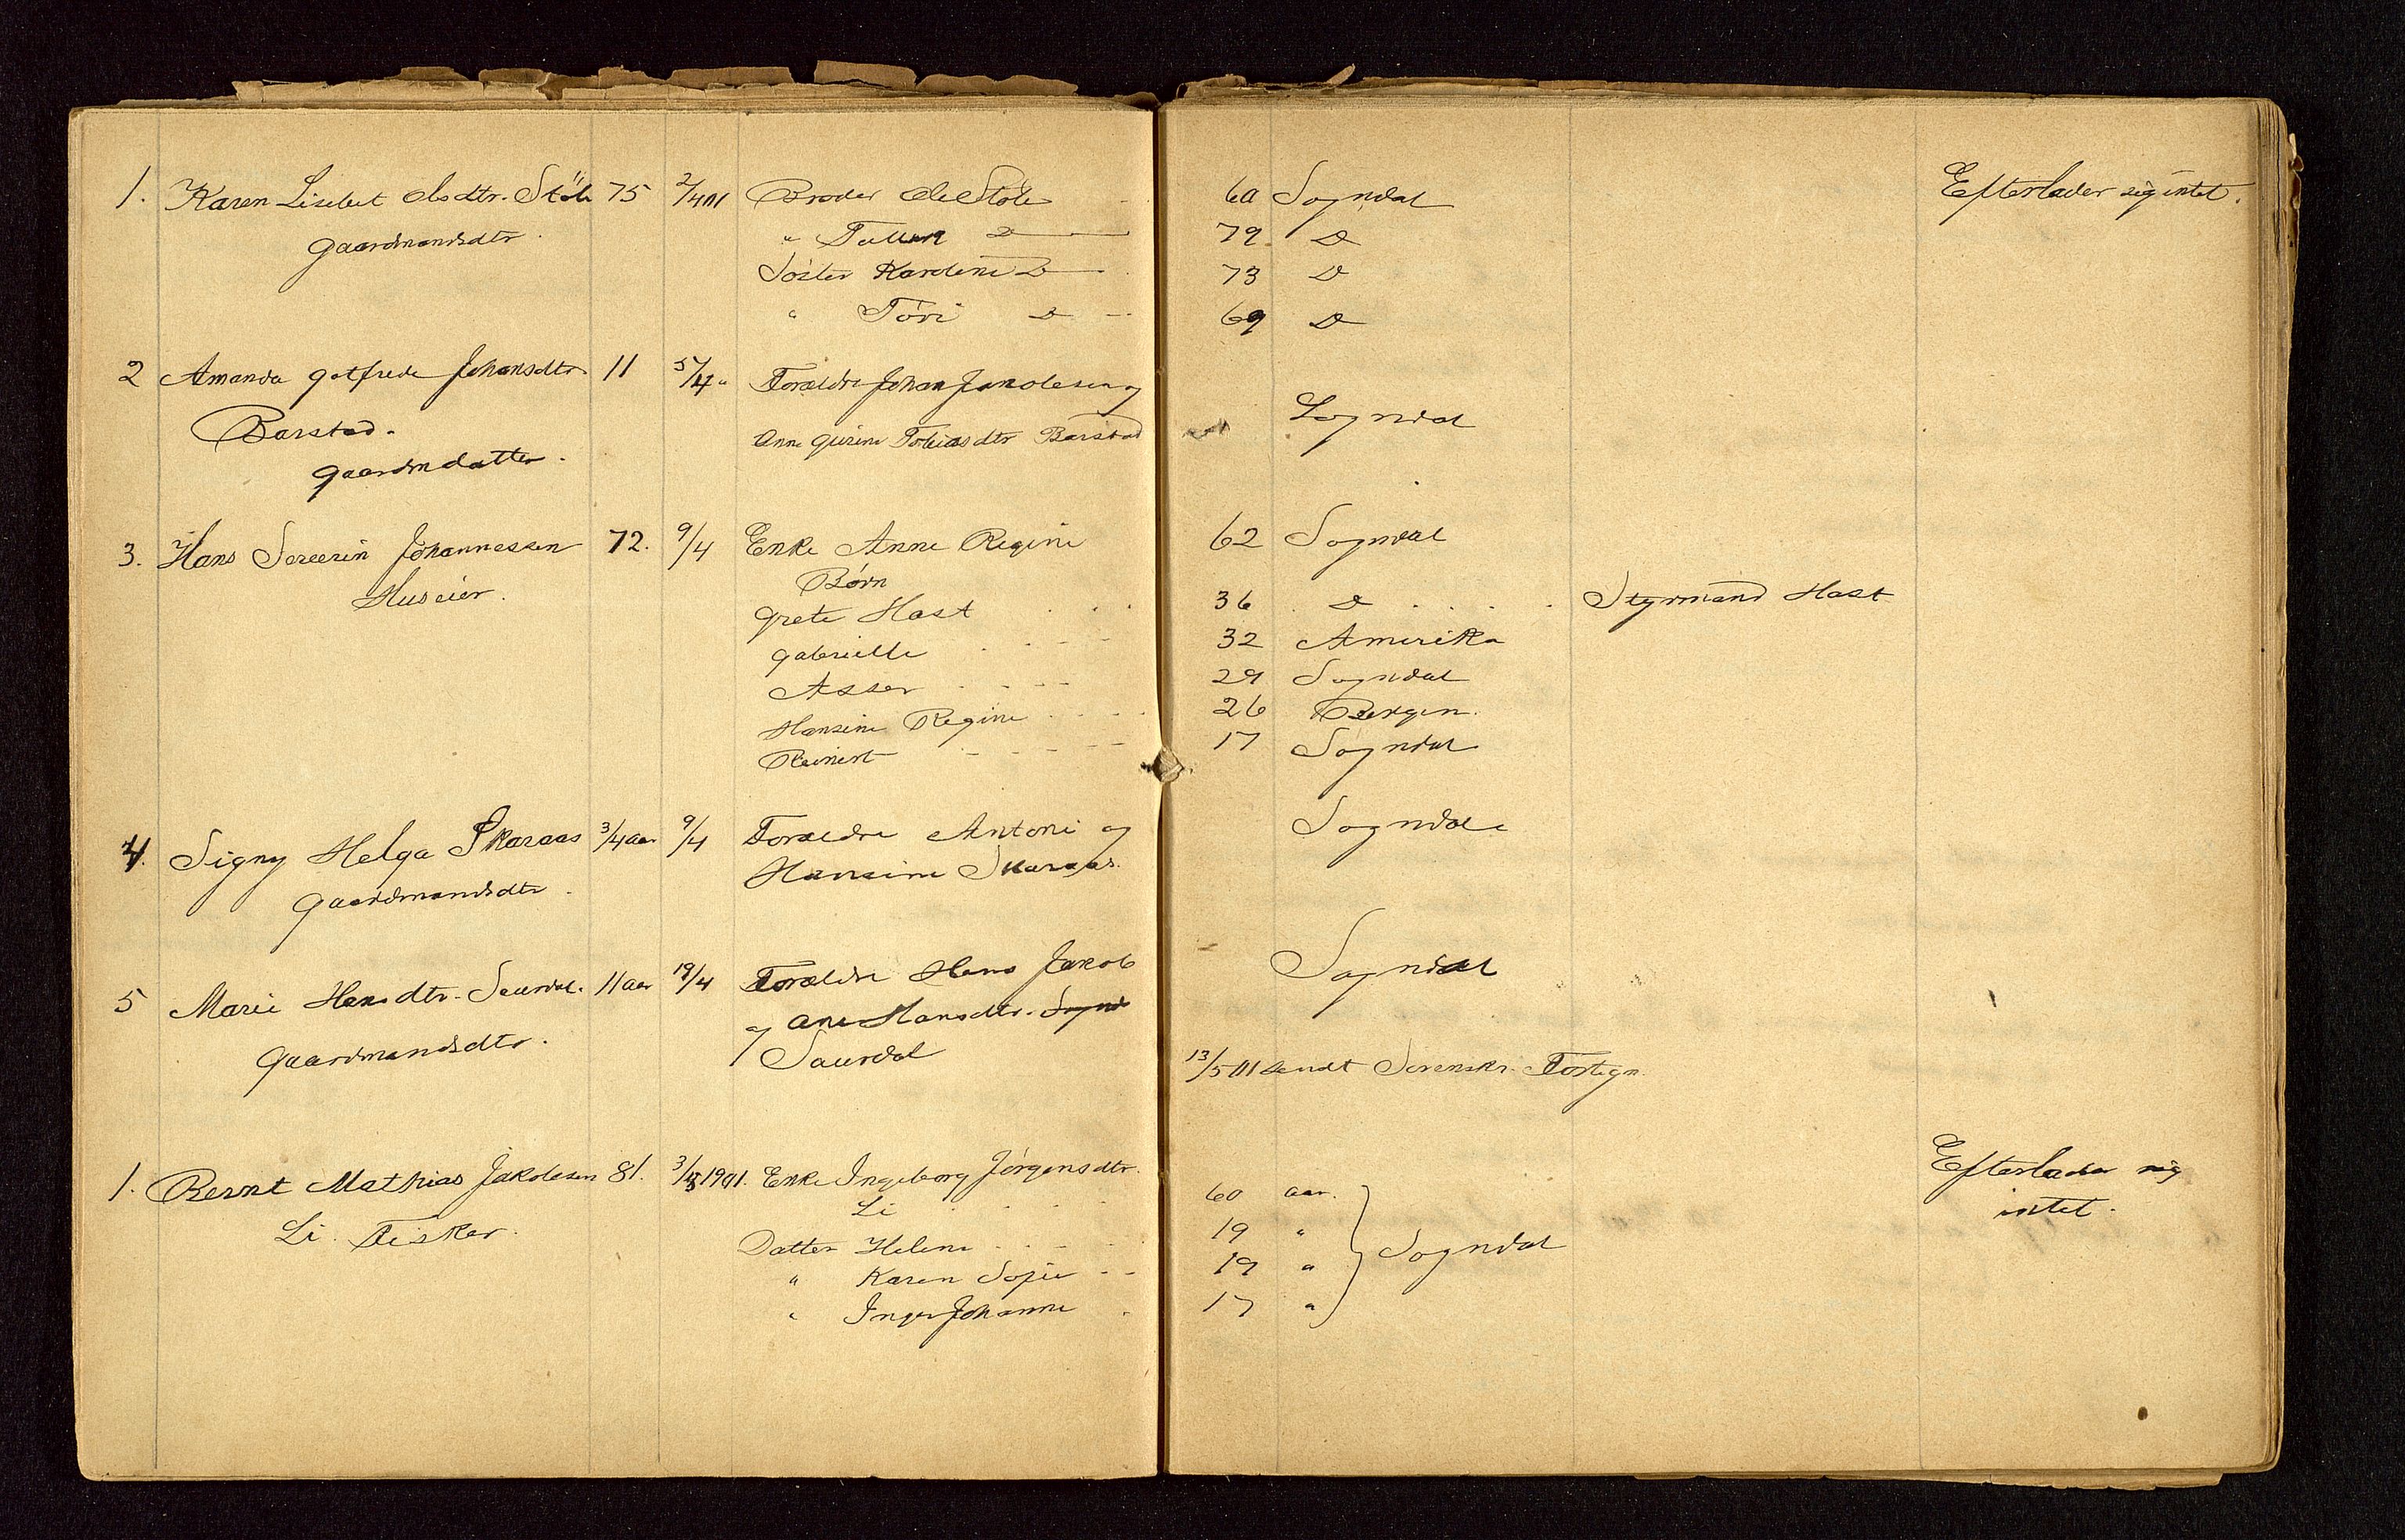 1. Karen Lisebet Olsdtr. Støle 75 2/4 01 Broder Ole Støle 60 Sogndal Efterlader sig intet.
Gaardmandsdtr. " Tallak D 79 D
Søster Karoline D 73 D
" Tøri D 69 D
2 Amanda Gotfrede Johansdtr 11 5/4 " Forældre Johan Jakobsen og
Barstad. Anne Gurine Tobiasdtr Barstad Sogndal
Gaardmdatter.
3. Hans Severin Johannessen 72. 9/4 Enke Anne Regine 62 Sogndal
Huseier. Børn
Grete Hast 36 D Styrmand Hast
Gabrielle 32 Amerika
Asser 29 Sogndal
Hansine Regine 26 Bergen.
Reinert 17 Sogndal
4. Signy Helga Skaraas 3/4 aar 9/4 Forældre Antoni og Sogndal
Gaardmandsdtr. Hansine Skaraas.
5 Marie Hansdtr. Saurdal. 11 aar 19/4 Forældre Hans Jakob Sogndal
Gaardmandsdtr. og Ane Hansdtr. Sognd
Saurdal
13/5 01 sendt Sorenskr. Fortegn.
1. Bernt Mathias Jakobsen 81. 3/5 1901. Enke Ingeborg Jørgensdtr. Efterlader sig
Li. Fisker. Li 60 aar. intet.
Datter Helene 19 " Sogndal
" Karen Sofie 19 "
" Inger Johanne 17 "